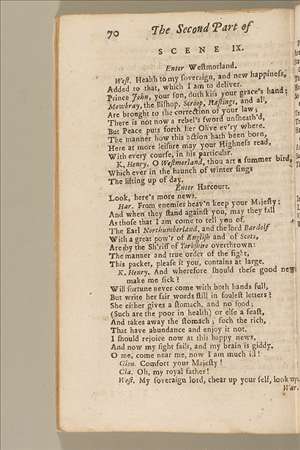 70 The Second Part of
SCENE IX.
Enter Westmorland.
West. Health to my soveraign, and new happiness,
Added to that, which I am to deliver.
Prince John, your son, doth kiss your grace's hand;
Mowbray, the Bishop, Scroop, Hastings, and all,
Are brought to the correction of your law;
There is not now a rebel's sword unsheath'd,
But Peace puts forth her Olive ev'ry where.
The manner how this action hath been born,
Here at more leisure may your Highness read,
With every course, in his particular.
K. Henry. O Westmorland, thou art a summer bird,
Which ever in the haunch of winter sings
The lifting up of day.
Enter Harcourt.
Look, here's more news.
Har. From enemies heav'n keep your Majesty:
And when they stand against you, may they fall
As those that I am come to tell you of.
The Earl Northumberland, and the lord Bardolf
With a great pow'r of English and of Scots,
Are by the Sh'riff of Yorkshire overthrown:
The manner and true order of the fight,
This packet, please it you, contains at large.
K. Henry. And wherefore should these good news
make me sick?
Will fortune never come with both hands full,
But write her fair words still in foulest letters?
She either gives a stomach, and no food;
(Such are the poor in health) or else a feast,
And takes away the stomach; such the rich,
That have abundance and enjoy it not.
I should rejoice now at this happy news,
And now my sight fails, and my brain is giddy.
O me, come near me, now I am much ill!
Glou. Comfort your Majesty!
Cla. Oh, my royal father!
West. My soveraign lord, chear up your self, look up.
War.